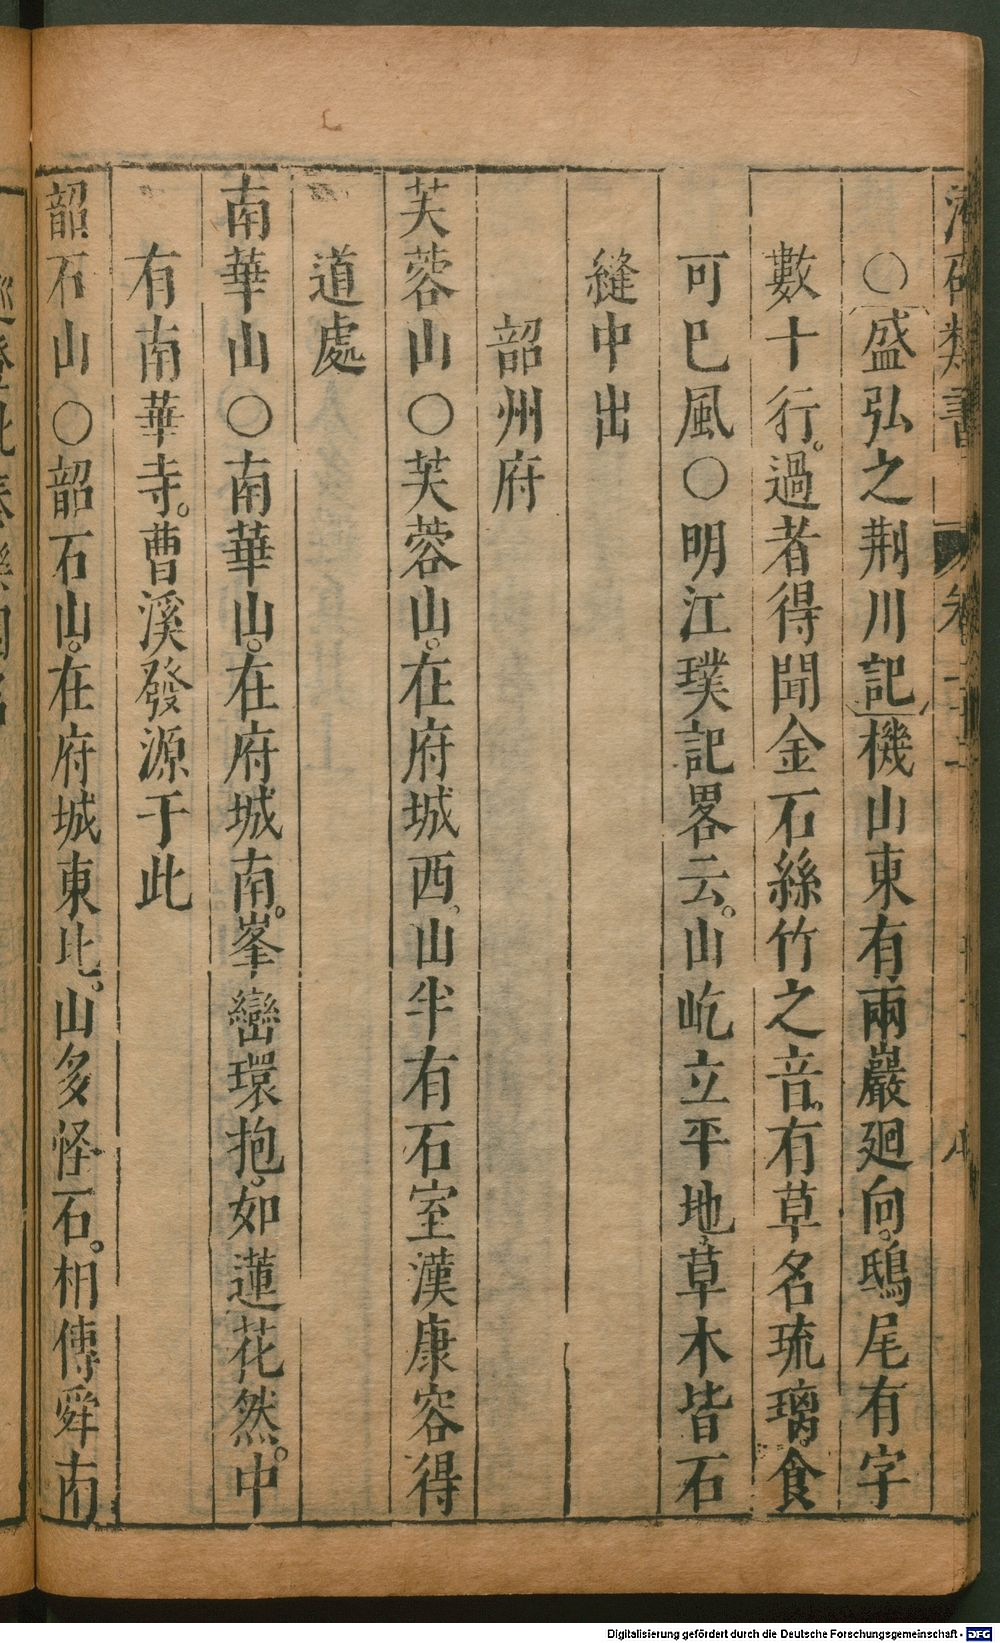 ○盛弘之荆川記機山東有兩巖廻向。鴟尾有字
數十行。過者得聞金石絲竹之音。有草名琉璃。食
可已風○明江璞記畧云。山屹立平地。草木皆石
縫中出
韶州府
芙蓉山○芙蓉山。在府城西。山半有石室漢康容得
道處
南華山○南華山。在府城南。峯巒環抱。如蓮花然。中
有南華寺。曹溪發源于此
韶石山○韶石山。在府城東北。山多怪石。相傳舜南
Digitalisierung gefördert durch die Deutsche Forschungsgemeinschaft - DFG